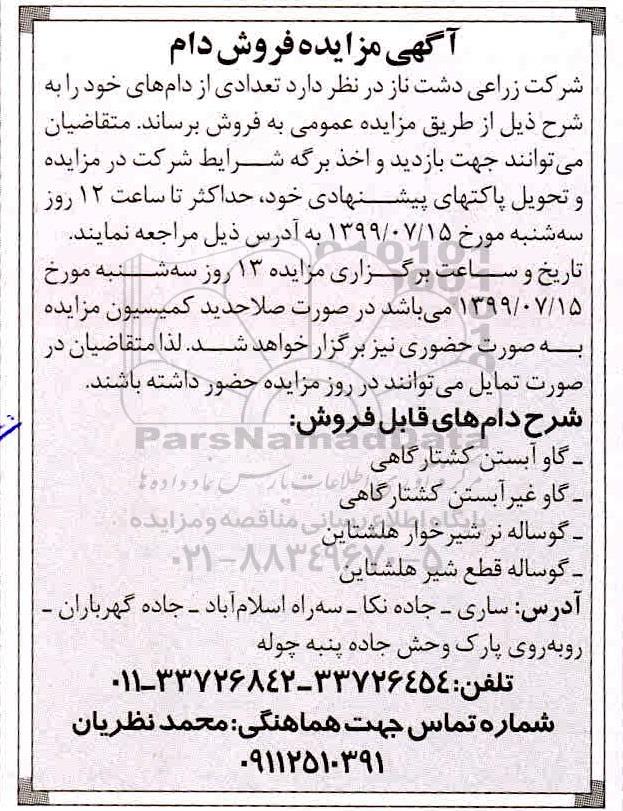 آگهی مزایده فروش دام
شرکت زراعی دشت ناز در نظر دارد تعدادی از دام‌های خود را به
شرح ذیل از طریق مزایده عمومی به فروش برساند. متقاضیان
می‌توانند جهت بازدید و اخذ برگه شرایط شرکت در مزایده
و تحویل پاکتهای پیشنهادی خود، حداکثر تا ساعت ۱۲ روز
سه‌شنبه مورخ ۱۳۹۹/۰۷/۱۵ به آدرس ذیل مراجعه نمایند.
تاریخ و ساعت برگزاری مزایده ۱۳ روز سه‌شنبه مورخ
۱۳۹۹/۰۷/۱۵ می‌باشد در صورت صلاحدید کمیسیون مزایده
به صورت حضوری نیز برگزار خواهد شد. لذا متقاضیان در
صورت تمایل می‌توانند در روز مزایده حضور داشته باشند.
شرح دام‌های قابل فروش:
ParsNamadData
ـ گاو آبستن کشتارگاهی
ـ گاو غیرآبستن کشتارگاهی
پایگاه اطلاع رسانی مناقصه و مزایده
ـ گوساله نر شیرخوار هلشتاین
۰۲۱-۸۸۳۴۹۶۷۰-۵
ـ گوساله قطع شیر هلشتاین
آدرس: ساری ـ جاده نکا ـ سه‌راه اسلام‌آباد ـ جاده گهرباران ـ
روبه‌روی پارک وحش جاده پنبه چوله
تلفن: ۳۳۷۲۶۴۵۴ـ۳۳۷۲۶۸۴۲ـ۰۱۱
شماره تماس جهت هماهنگی: محمد نظریان
۰۹۱۱۲۵۱۰۳۹۱